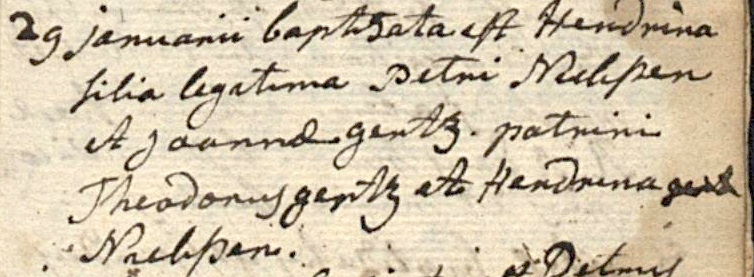 29 januarii baptizata est Hendrina
filia legitima Petri Niebpen
et joannæ gertz. patrini
Theodorus gertz et Hendrina
Niebpen.
et Petrus